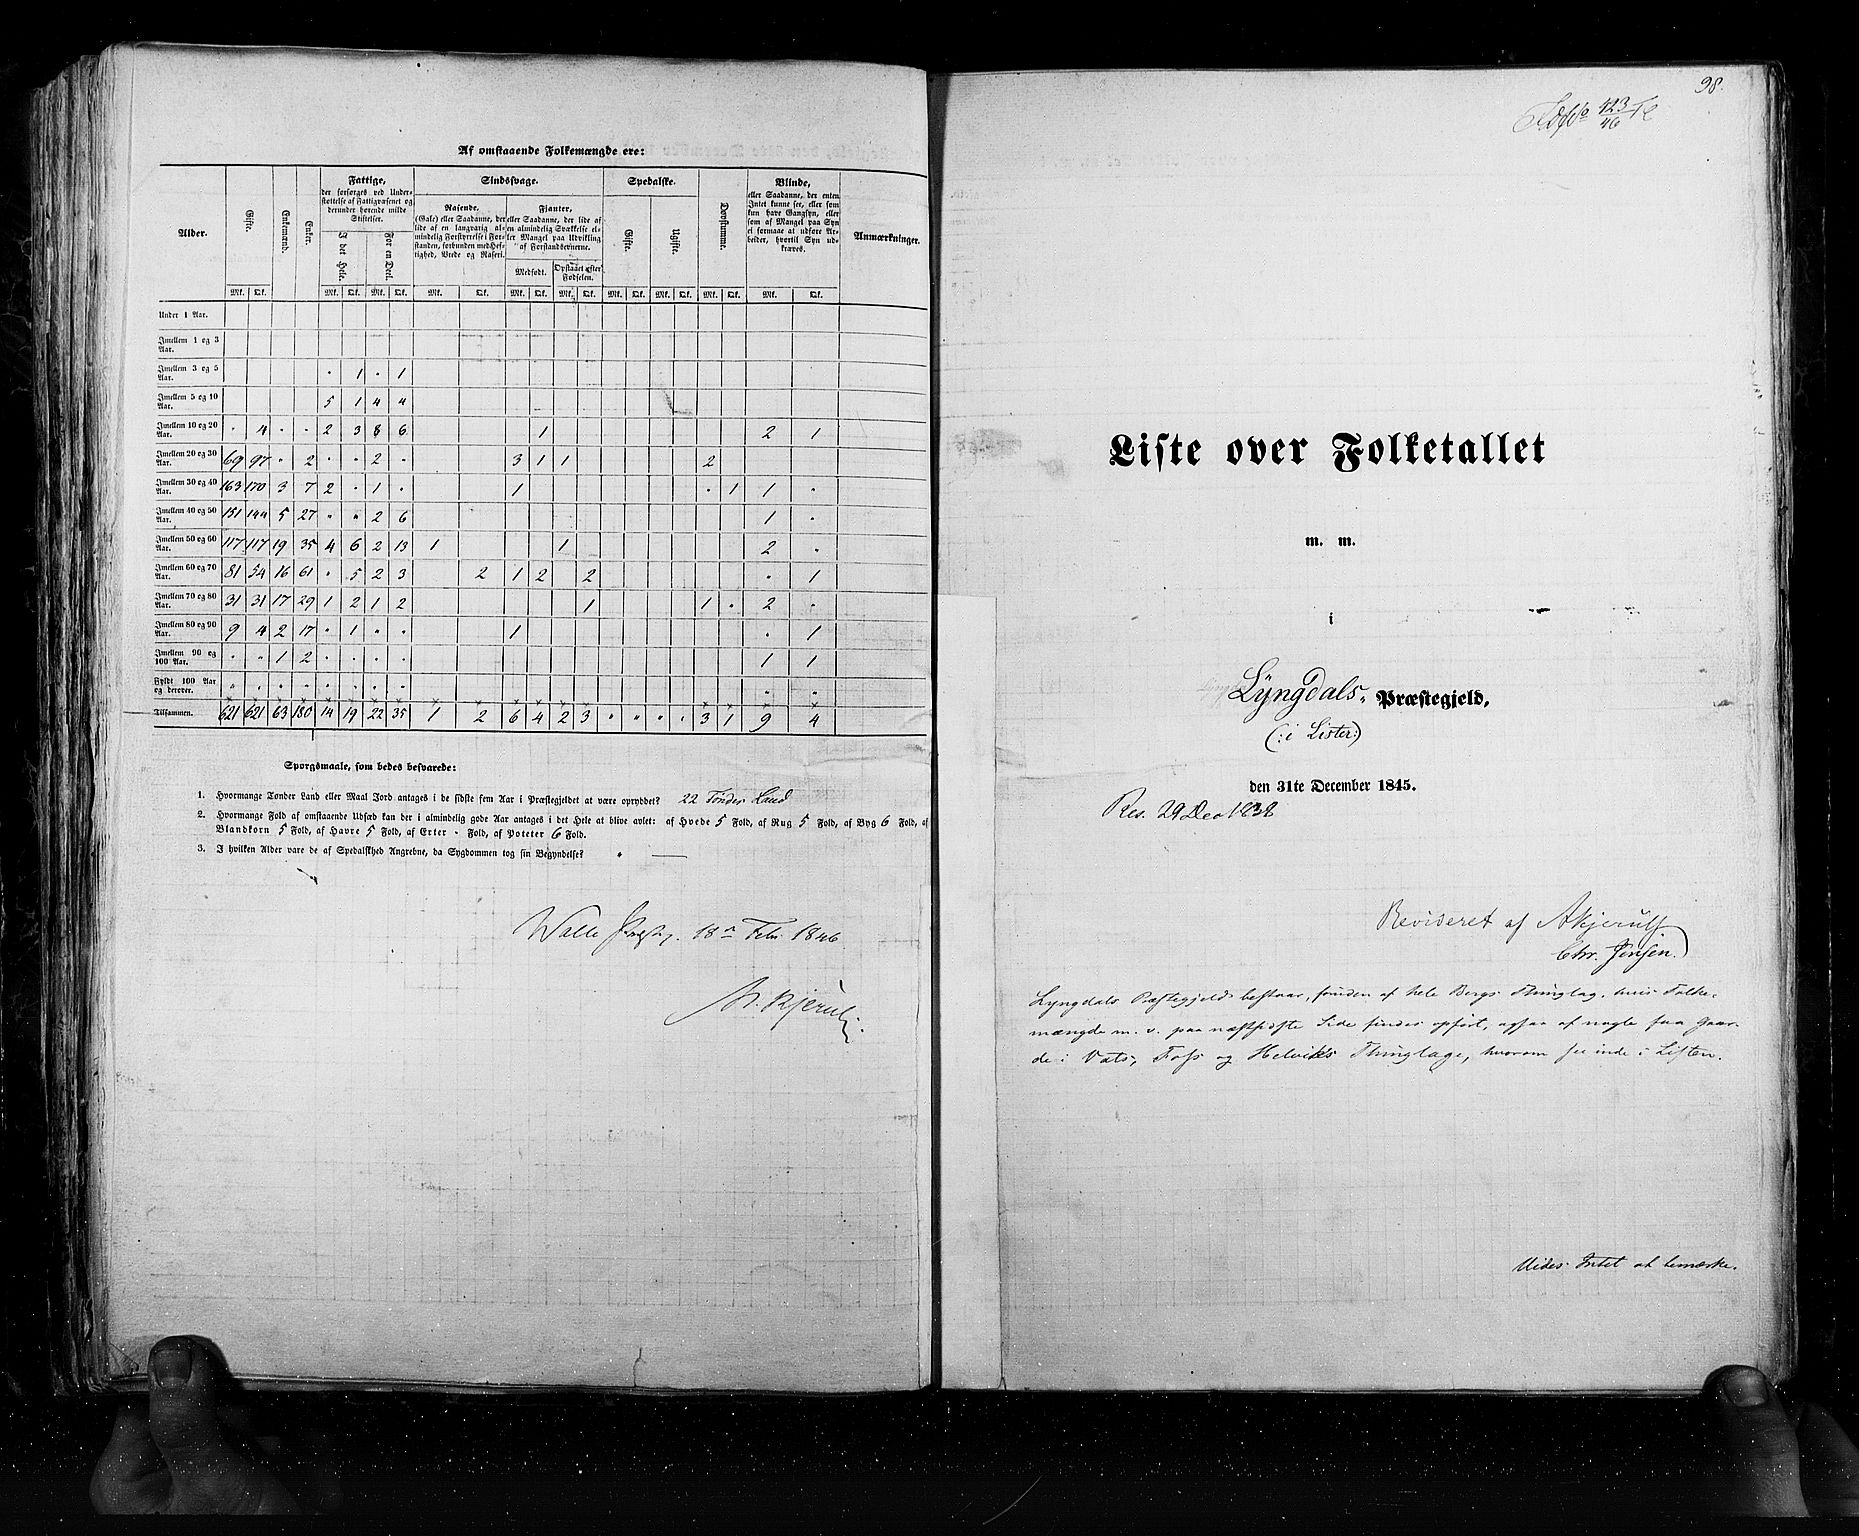 Af omstaaende Folkemængde ere:
Alder. Gifte. Enkemænd. Enker. Fattige, der forsørges ved Understøttelse af Fattigvæsenet og derunder hørende milde Stiftelser. Sindssvage. Spedalske. Døvstumme. Blinde, eller Saadanne, der enten Intet kunne see, eller som kun have Gangsyn, eller som af Mangel paa Syn ei formaae at udføre Arbeider, hvortil Syn udkræves. Anmærkninger.
I det Hele. For en Deel. Rasende, (Gale) eller Saadanne, der lide af en langvarig almindelig Forstyrrelse i Forstanden, forbunden med Heftighed, Vrede og Raseri. Fjanter, eller Saadanne, der lide af en almindelig Svækkelse eller Mangel paa Udvikling af Forstandsevnerne. Gifte. Ugifte.
Medfødt. Opstaaet efter Fødselen.
Mk. Qk. Mk. Qk. Mk. Qk. Mk. Qk. Mk. Qk. Mk. Qk. Mk. Qk. Mk. Qk. Mk. Qk. Mk. Qk.
Under 1 Aar.
Imellem 1 og 3 Aar.
Imellem 3 og 5 Aar. " 1 " 1
Imellem 5 og 10 Aar. 5 1 4 4
Imellem 10 og 20 Aar. " 4 " " 2 3 8 6 1 2 1
Imellem 20 og 30 Aar. 69 97 " 2 " " 2 " 3 1 1 2
Imellem 30 og 40 Aar. 163 170 3 7 2 " 1 " 1 " 1 1 "
Imellem 40 og 50 Aar. 151 144 5 27 " " 2 6 1 "
Imellem 50 og 60 Aar. 117 117 19 35 4 6 2 13 1 1 2 "
Imellem 60 og 70 Aar. 81 54 16 61 " 5 2 3 2 1 2 2 " 1
Imellem 70 og 80 Aar. 31 31 17 29 1 2 1 2 1 1 " 2 "
Imellem 80 og 90 Aar. 9 4 2 17 " 1 " " 1 " 1
Imellem 90 og 100 Aar. " " 1 2 " " " " 1 1
Fyldt 100 Aar og derover. " " " " " " " " " "
Tilsammen. 621 621 63 180 14 19 22 35 1 2 6 4 2 3 " " " " 3 1 9 4
Spørgsmaale, som bedes besvarede:
1. Hvormange Tønder Land eller Maal Jord antages i de sidste fem Aar i Præstegjeldet at være opryddet? 22 Tønder Land
2. Hvormange Fold af omstaaende Udsæd kan der i almindelig gode Aar antages i det Hele at blive avlet: af Hvede 5 Fold, af Rug 5 Fold, af Byg 6 Fold, af
Blandkorn 5 Fold, af Havre 5 Fold, af Erter " Fold, af Poteter 6 Fold.
3. I hvilken Alder vare de af Spedalskhed Angrebne, da Sygdommen tog sin Begyndelse? "
Walle 18 Febr 1846.
98.
423/46
Liste over Folketallet
m. m.
i
Lyngdals Præstegjeld,
(: i Lister:)
den 31te December 1845.
Res. 29 Dec 1838
Revideret af AKjerulf
Chr. Jensen.
Lyngdals Præstegjeld bestaar, foruden af hele Bergs Thinglag, hvis Folke-
mængde m. v. paa næstsidste Side findes opført, ogsaa af nogle faa Gaar-
de i Vats, Foss og Helviks Thinglage, hvorom see inde i Listen.
Videre Intet at bemærke.